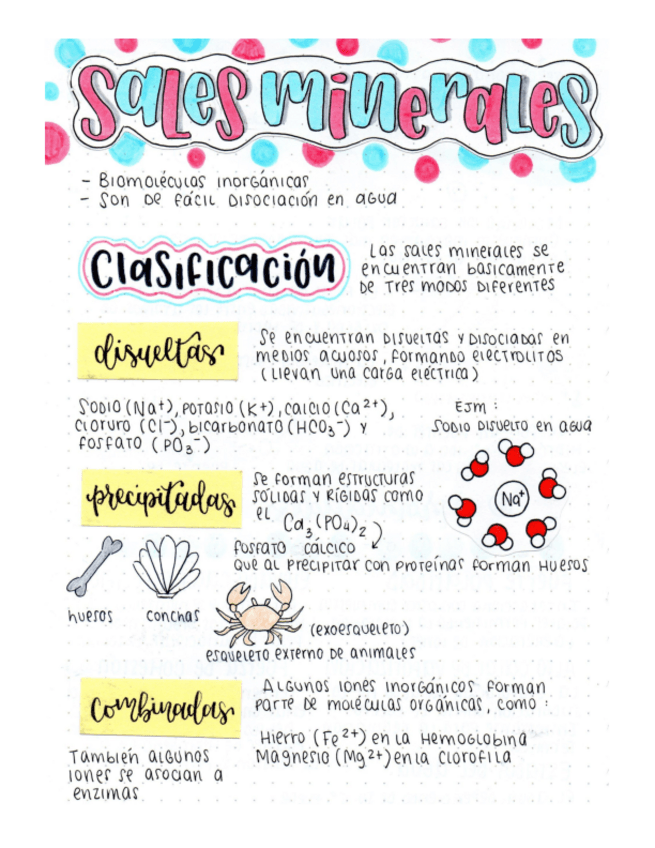 Sales minerales
- Biomoléculas inorgánicas
- Son de fácil disociación en agua
Clasificación
Las sales minerales se
encuentran basicamente
de tres modos diferentes
disueltas
Se encuentran disueltas y disociadas en
medios acuosos, formando electrolitos
(llevan una carga eléctrica)
Sodio (Na+), potasio (K+), calcio (Ca 2+),
cloruro (Cl-), bicarbonato (HCO3-) y
fosfato (PO3-)
Ejm :
Sodio disuelto en agua
Na+
precipitadas
Se forman estructuras
sólidas y rígidas como
el Ca3(PO4)2
fosfato cálcico
que al precipitar con proteínas forman huesos
huesos
conchas
(exoesqueleto)
esqueleto externo de animales
Combinadas
Algunos iones inorgánicos forman
parte de moléculas orgánicas, como :
Hierro (Fe 2+) en la Hemoglobina
Magnesio (Mg 2+) en la clorofila
También algunos
iones se asocian a
enzimas